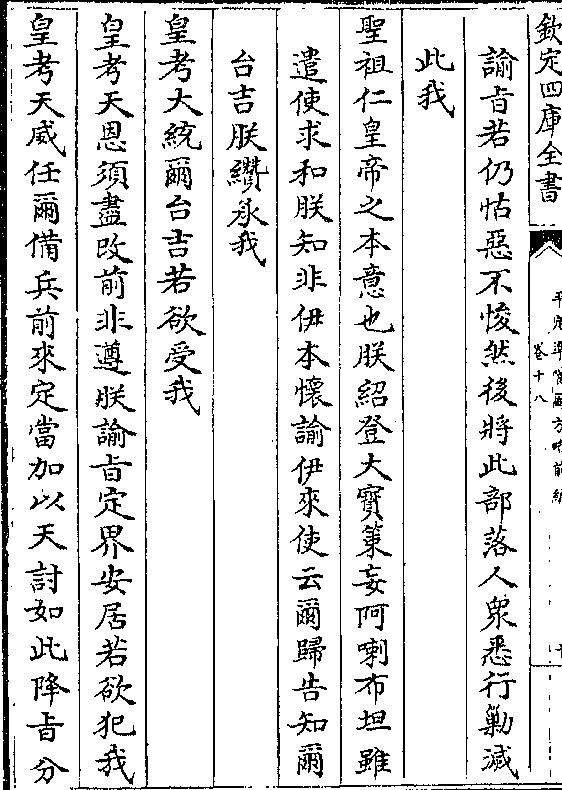 欽定四庫全書
平定準噶爾方略前編
卷十八
諭旨若仍怙惡不悛然後將此部落人衆悉行勦滅
此我
聖祖仁皇帝之本意也朕紹登大寶策妄阿喇布坦雖
遣使求和朕知非伊本懷諭伊來使云爾歸告知爾
台吉朕纘承我
皇考大統爾台吉若欲受我
皇考天恩須盡改前非遵朕諭旨定界安居若欲犯我
皇考天威任爾備兵前來定當加以天討如此降旨分